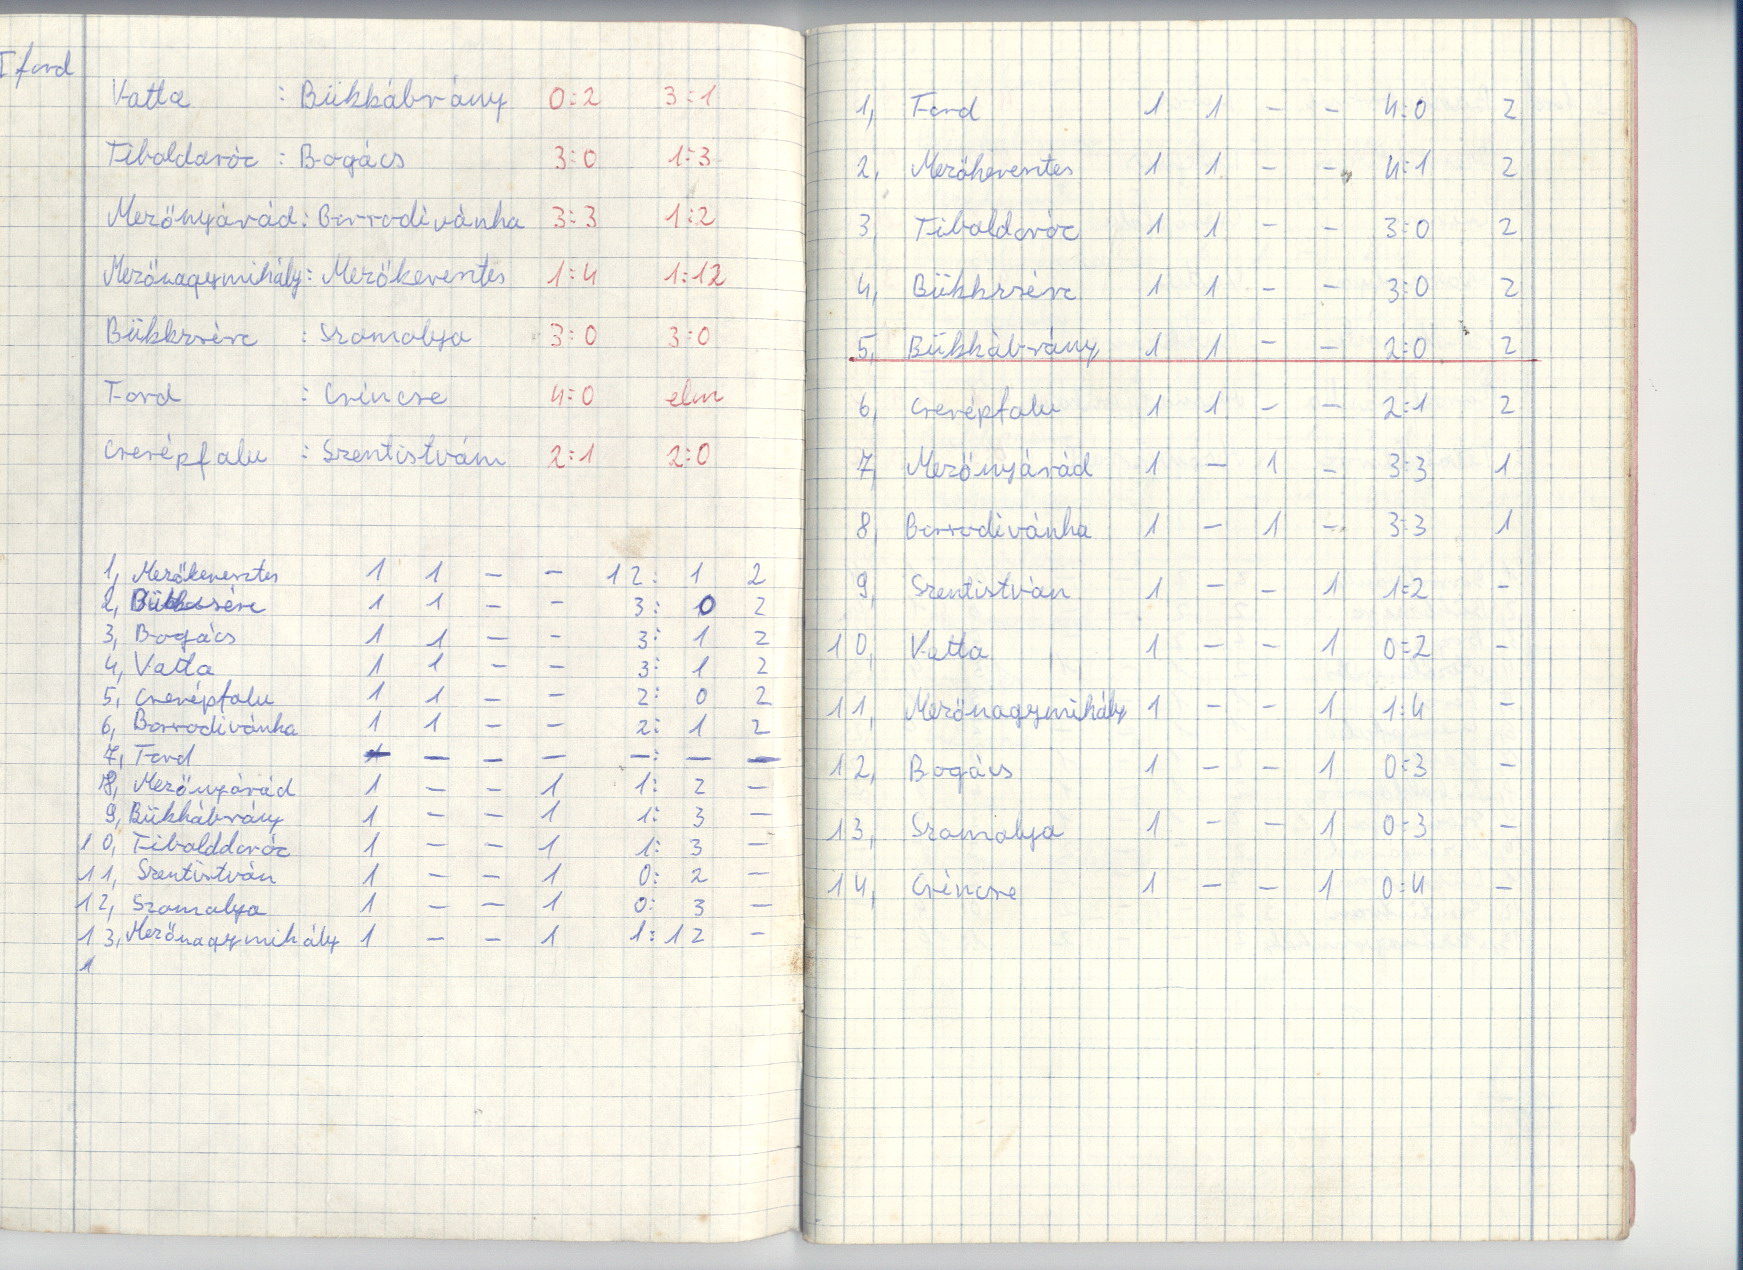 I ford
Vatta : Bükkábrány 0:2 3:1
Tibolddaróc : Bogács 3:0 1:3
Mezőnyárád : Borsodivánka 3:3 1:2
Mezőnagymihály : Mezőkeresztes 1:4 1:12
Bükkzsérc : Szomolya 3:0 3:0
Tard : Csincse 4:0 elm
Cserépfalu : Szentistván 2:1 2:0
1, Mezőkeresztes 1 1 – – 12: 1 2
2, Bükkzsérc 1 1 – – 3: 0 2
3, Bogács 1 1 – – 3: 1 2
4, Vatta 1 1 – – 3: 1 2
5, Cserépfalu 1 1 – – 2: 0 2
6, Borsodivánka 1 1 – – 2: 1 2
7, Tard – – – – –: – –
8, Mezőnyárád 1 – – 1 1: 2 –
9, Bükkábrány 1 – – 1 1: 3 –
10, Tibolddaróc 1 – – 1 1: 3 –
11, Szentistván 1 – – 1 0: 2 –
12, Szomolya 1 – – 1 0: 3 –
13, Mezőnagymihály 1 – – 1 1:12 –
1
1, Tard 1 1 – – 4:0 2
2, Mezőkeresztes 1 1 – – 4:1 2
3, Tibolddaróc 1 1 – – 3:0 2
4, Bükkzsérc 1 1 – – 3:0 2
5, Bükkábrány 1 1 – – 2:0 2
6, Cserépfalu 1 1 – – 2:1 2
7, Mezőnyárád 1 – 1 – 3:3 1
8, Borsodivánka 1 – 1 – 3:3 1
9, Szentistván 1 – – 1 1:2 –
10, Vatta 1 – – 1 0:2 –
11, Mezőnagymihály 1 – – 1 1:4 –
12, Bogács 1 – – 1 0:3 –
13, Szomolya 1 – – 1 0:3 –
14, Csincse 1 – – 1 0:4 –